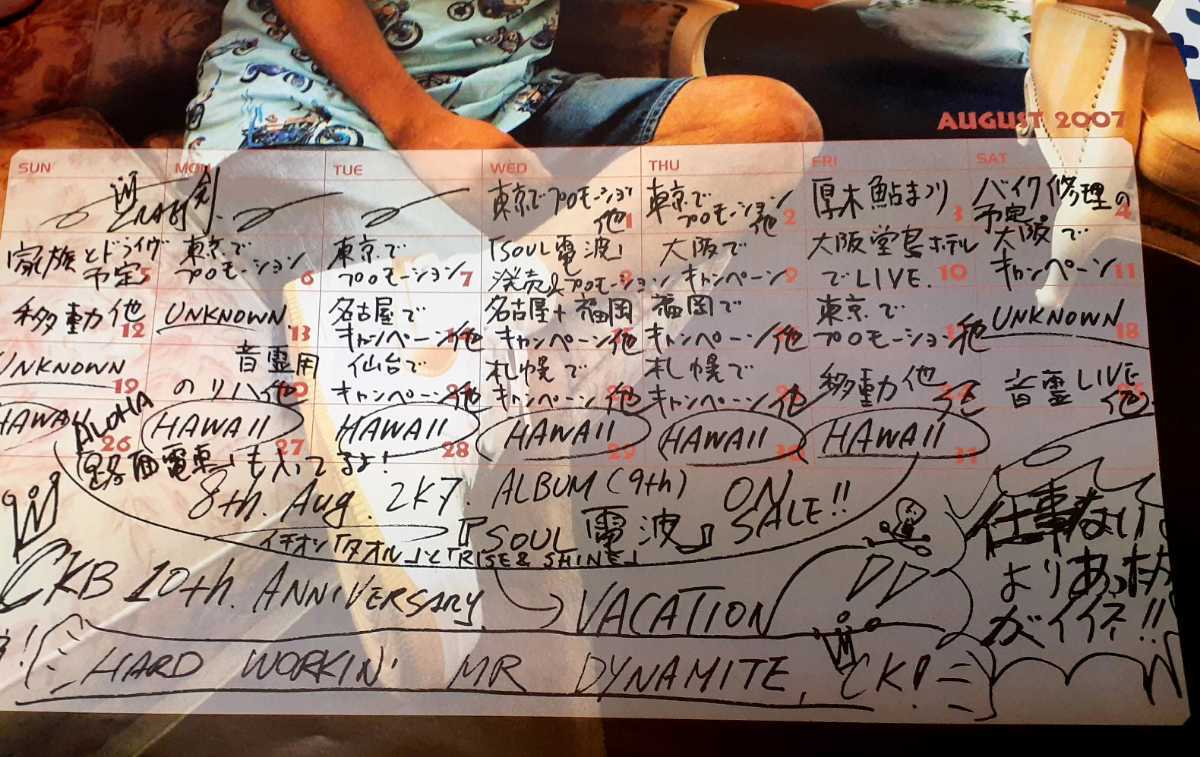 AUGUST 2007
SUN MON TUE WED THU FRI SAT
東京でプロモーション他 1
東京でプロモーション他 2
厚木鮎まつり 3
バイク修理の予定 4
家族とドライヴ予定 5
東京でプロモーション 6
東京でプロモーション 7
「SOUL電波」発売&プロモーション 8
大阪でキャンペーン 9
大阪堂島ホテルでLIVE. 10
大阪でキャンペーン 11
移動他 12
UNKNOWN 13
名古屋でキャンペーン他
名古屋+福岡キャンペーン他
福岡でキャンペーン他
東京でプロモーション他
UNKNOWN 18
UNKNOWN 19
音霊用のリハ他
仙台でキャンペーン他
札幌でキャンペーン他
札幌でキャンペーン他
移動他
音霊LIVE他 25
HAWAII 26
HAWAII 27
HAWAII 28
HAWAII 29
HAWAII 30
HAWAII 31
ALOHA
「路面電車」も入ってるよ!
8th. Aug. 2K7. ALBUM (9th) ON SALE!!
『SOUL電波』
イチオシ「タオル」と「RISE & SHINE」
CKB 10th. ANNIVERSARY
VACATION
仕事ない
よりあった方
がイイネ!!
HARD WORKIN' MR DYNAMITE, CK!